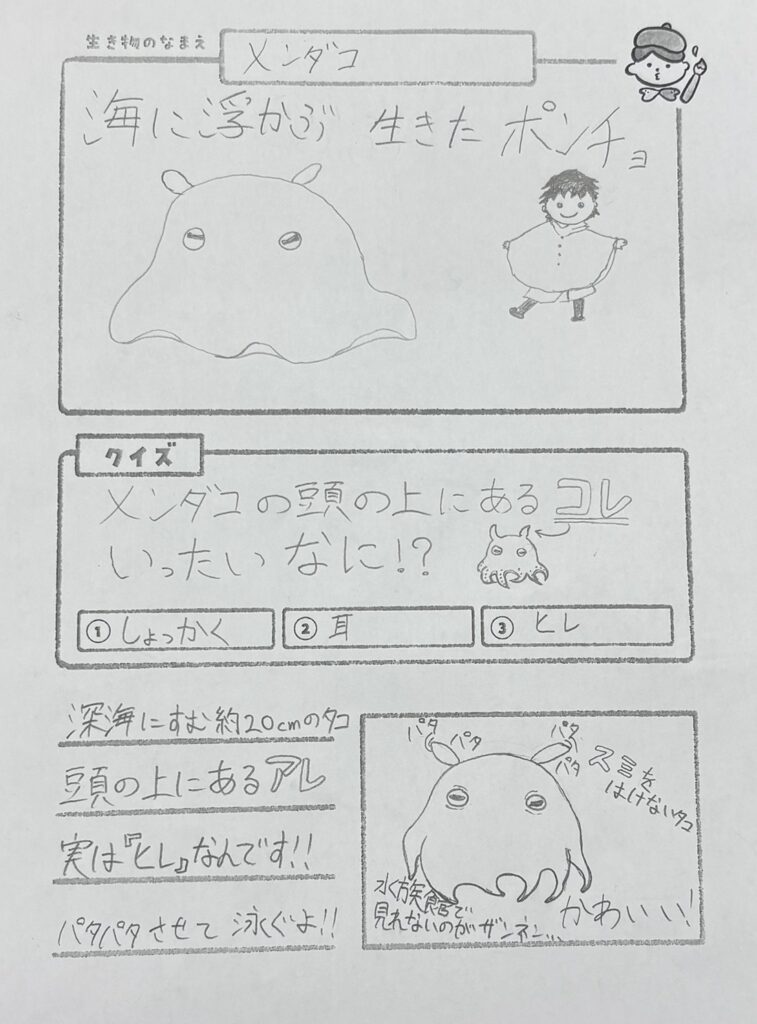 生き物のなまえ
メンダコ
海に浮かぶ 生きた ポンチョ
クイズ
メンダコの頭の上にあるコレ
いったい なに!?
① しょっかく
② 耳
③ ヒレ
深海にすむ約20cmのタコ
頭の上にあるアレ
実は『ヒレ』なんです!!
パタパタさせて 泳ぐよ!!
パタ
パタ
パタ
パタ
スミを
はけないタコ
水族館で
見れないのがザンネン...
かわいい!